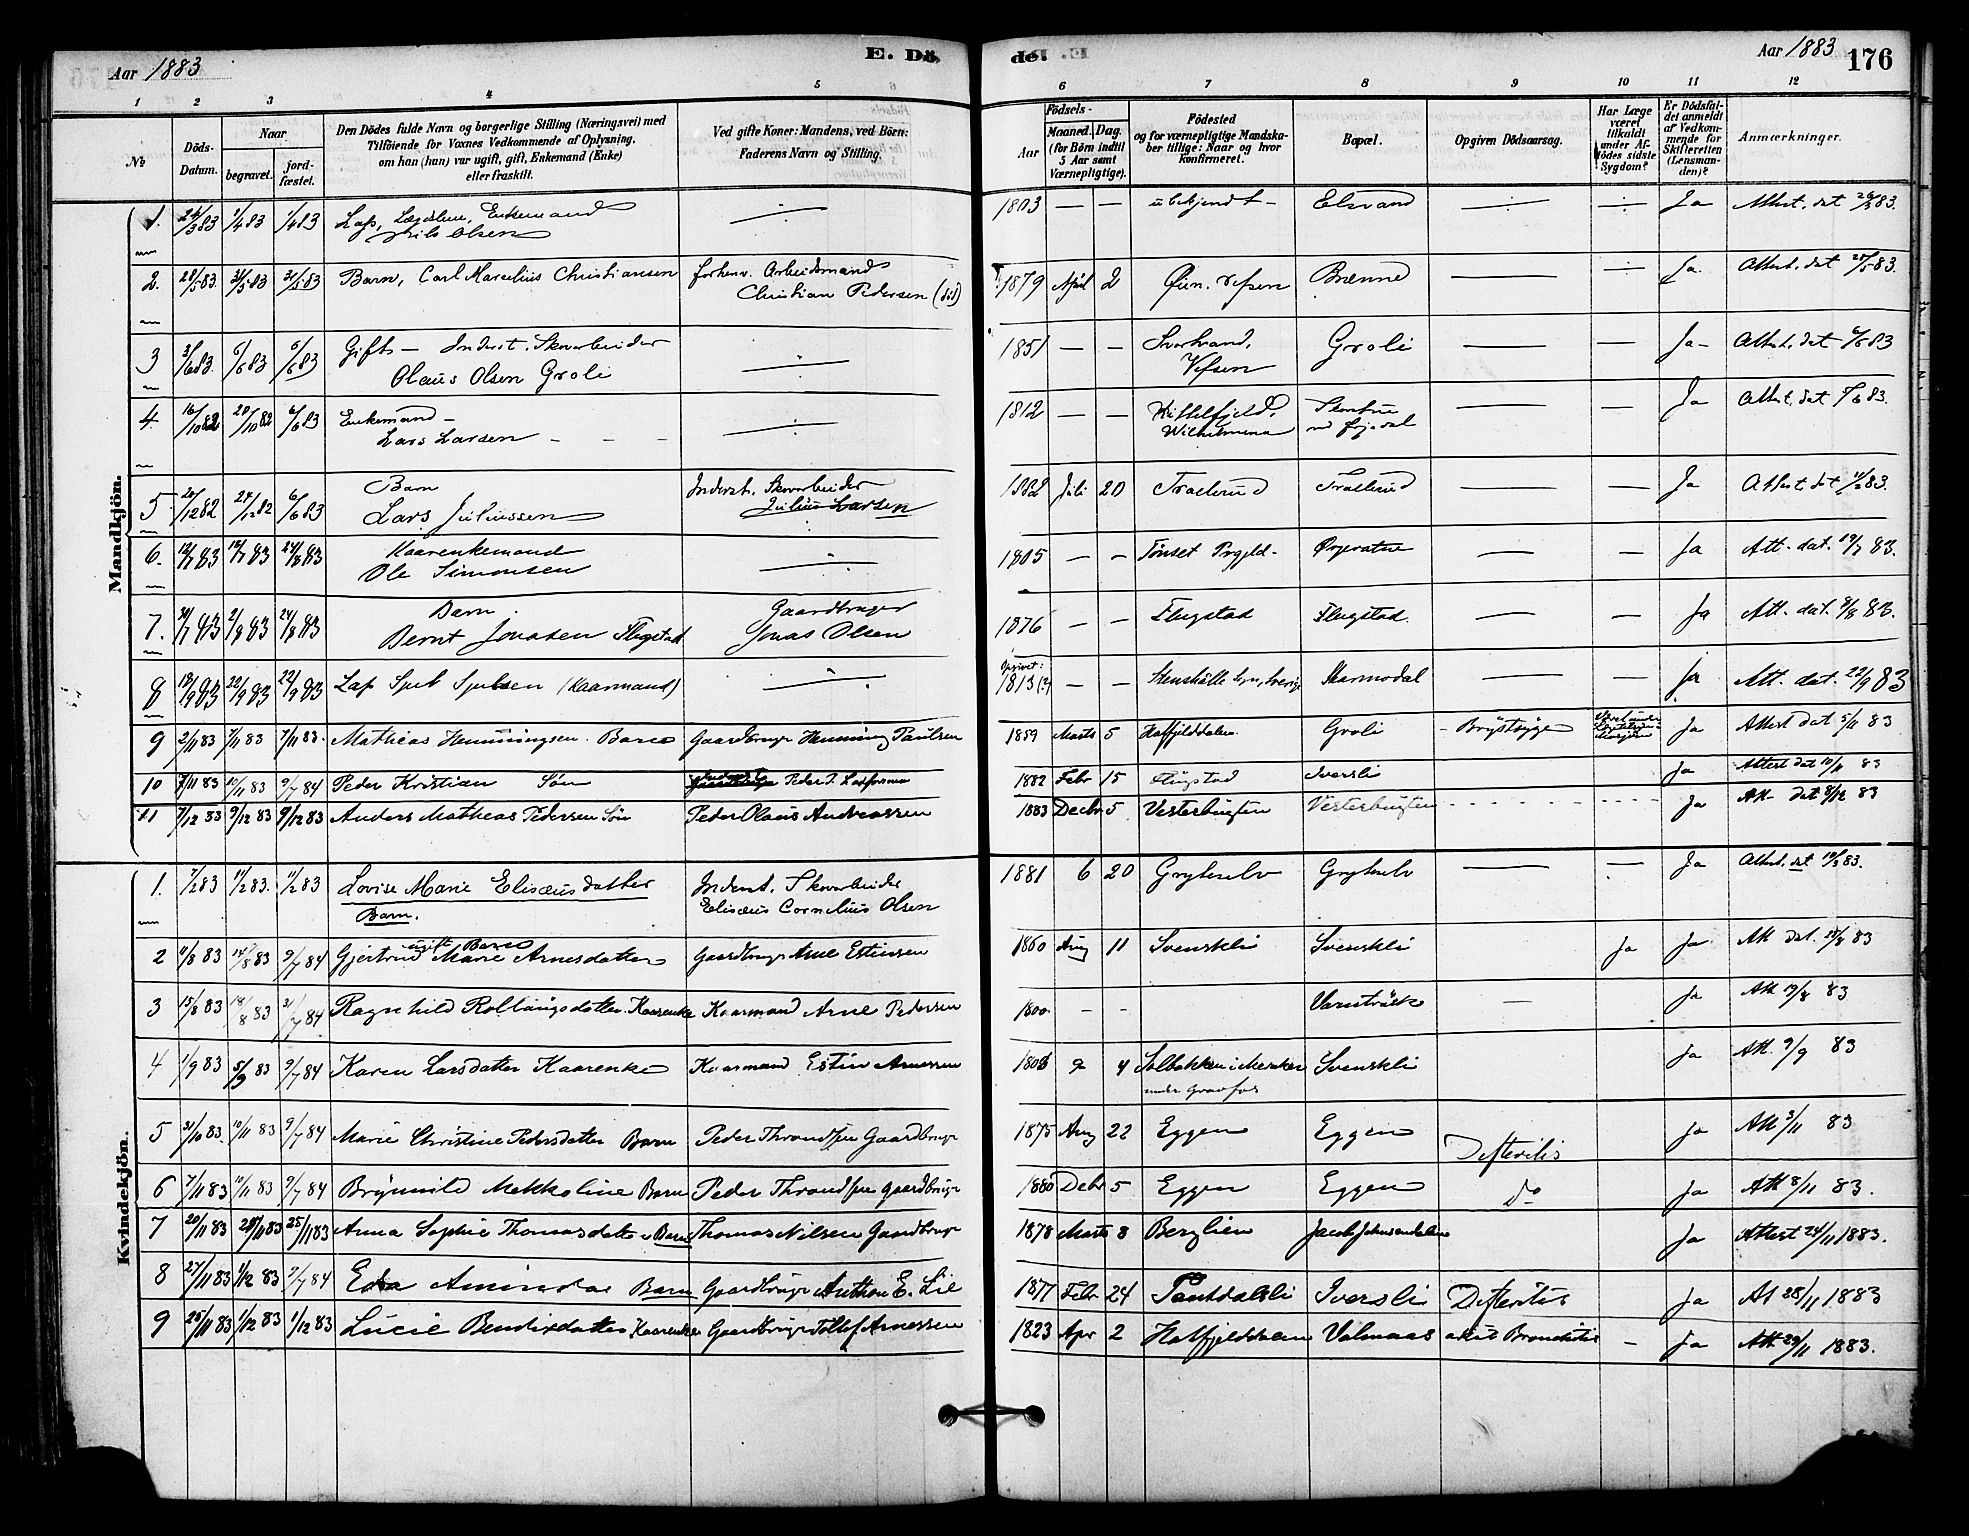 Aar 1883
E. Dö
de.
Aar 1883
176
1 2 3 4 5 6 7 8 9 10 11 12
No
Döds-
Datum.
Naar
begravet.
jord-
fæstet.
Den Dödes fulde Navn og borgerlige Stilling (Næringsvei) med
Tilföiende for Voxnes Vedkommende af Oplysning,
om han (han) var ugift, gift, Enkemand (Enke)
eller fraskilt.
Ved gifte Koner: Mandens, ved Börn:
Faderens Navn og Stilling.
Födsels-
Aar
Maaned. Dag.
(for Börn indtil
5 Aar samt
Værnepligtige).
Födested
og for værnepligtige Mandska-
ber tillige: Naar og hvor
konfirmeret.
Bopæl.
Opgiven Dödsaarsag.
Har Læge
været
tilkaldt
under Af-
dödes sidste
Sygdom?
Er Dödsfal-
det anmeldt
af Vedkom-
mende for
Skifteretten
(Lensman-
den)?
Anmærkninger.
Mandkjön.
1. 24/3 83 1/4 83 1/4 83 Lap, Enkemand
Nils Olsen
1803 — — ubekjendt - Elsvand Ja Attest. dat 26/3 83.
2. 28/5 83. 31/5 83 31/5 83 Barn, Carl Marcelius Christiansen forhenv. Arbeidsmand
Christian Pedersen (död)
1879 April 2 Brenne — — Ja. Attest. dat 28/5 83.
3 3/6 83. 6/6 83 6/6 83 Gift — Inderst. Skovarbeider
Olaus Olsen Groli
1851 — — Svartvand,
Vefsen Groli — — Ja - Attest. dat 6/6 83
4. 16/10 82 20/10 82 6/6 83 Enkemand -
Lars Larsen - - -
1812 — — Kittelfjeld,
Wilhelmina — — Ja Attest. dat 6/6 83.
5. 20/12 82 24/12 82 6/6 83 Barn
Lars Juliussen Inderst. Skovarbeider
Julius Larsen
1882 Juli 20 Traelerud Traelerud — — Ja Attest dat 11/2 83.
6. 12/7 83 18/7 83 24/8 83 Kaarenkemand
Ole Simonsen
1805 — — Tønset Prgjld - — — Ja Att. dat. 19/7 83.
7. 30/7 83 2/8 83 24/8 83 Barn.
Bernt Jonasen Flugstad Gaardbruger
Jonas Olsen
1876 — — Flugstad Flugstad. — — Ja Att. dat. 8/8 83.
8 18/9 83 22/9 83 22/9 83 Lap Sjul Sjulsen (Kaarmand)
Opgivet:
1813 (?) — — Skarmodal — — Ja Att. dat. 22/9 83
9 2/11 83 7/11 83 7/11 83. Mathias Henningsen. Barn Gaardbruger Henning Paulsen
1859 Marts 5 Hatfjelddalen. Groli - Brystsyge Ja Attest dat 5/11 83
10 7/11 83 10/11 83 9/7 84 Peder Kristian Søn Peder
1882 Febr 15 Flugstad Iversli Ja Attest dat 10/11 83
11 7/12 83 9/12 83 9/12 83 Anders Mathias Pedersen Søn Peder Olaus Andreassen
1883 Decbr 5 Vesterbugten Vesterbugten Ja Att- dat 8/12 83
Kvindekjön.
1. 7/2 83 11/2 83. 11/2 83 Lovise Marie Elisæusdatter
Barn. Inderst. Skovarbeider
Elisæus Cornelius Olsen
1881 6 20 Gryteselv Gryteselv — — Ja Attest. dat 19/2 83.
2 11/8 83 14/8 83 9/7 84 Gjertrud Marie Arnesdatter ugift Barn Gaardbruger Arne Estensen
1860 Aug 11 Svenskli Svenskli Ja Ja Att dat. 13/8 83
3 15/8 83 18/8 83 31/7 84 Ragnhild Kaarenke Kaarmand Arne Pedersen
1800 - - — Ja Att 19/8 83
4 1/9 83 5/9 83 9/7 84 Karen Larsdatter Kaarenke Kaarmand Estin Arnessen
1806 9 4 Solbakken i Meraker Svenskli Ja Att. 9/9 83
5 31/10 83. 10/11 83 9/7 84 Marie Christine Pedersdatter Barn Peder Throndsen Gaardbruger
1875 Aug 22 Eggen Eggen Difteritis Ja Att 3/11 83
6 7/11 83 10/11 83 9/7 84 Brynnild Mekkoline Barn Peder Throndsen Gaardbruger
1880 Debr 5 Eggen Eggen do Ja Att 8/11 83.
7 20/11 83 25/11 83 25/11 83 Anna Sophie Thomasdatter Barn Thomas Nilsen Gaardbruger
1878 Marts 8 Berglien Jacob Johnsendalen Ja Attest 24/11 1883.
8 27/11 83 1/12 83 9/7 84 Edra Aminda Barn Gaardbruger Anthon E. Lie
1877 Febr 24 Pantdalsli Iversli Difteritis Ja At 28/11 1883
9 25/11 83 1/12 83 1/12 83 Lucie Bendixdatter Kaarenke Gaardbruger Tollef Arnessen
1823 Apr 2 Hatfjelddalen Valmaas akut Bronchitis - Ja Att 29/11 1883.